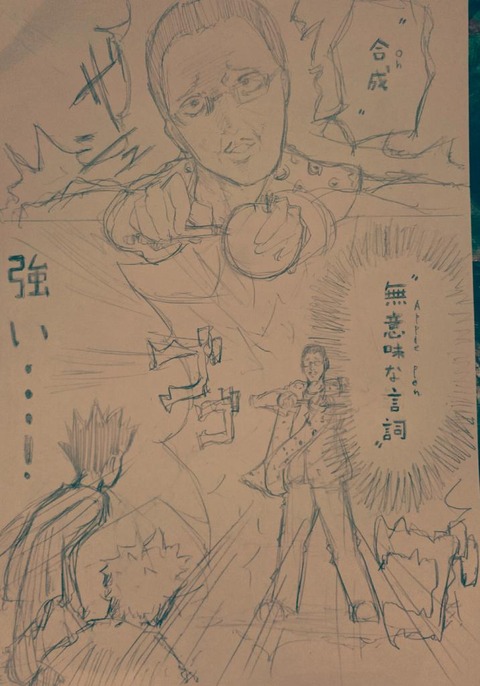 “合成”
oh
“無意味な言詞”
Apple Pen
ゴゴ
強い・・・・!